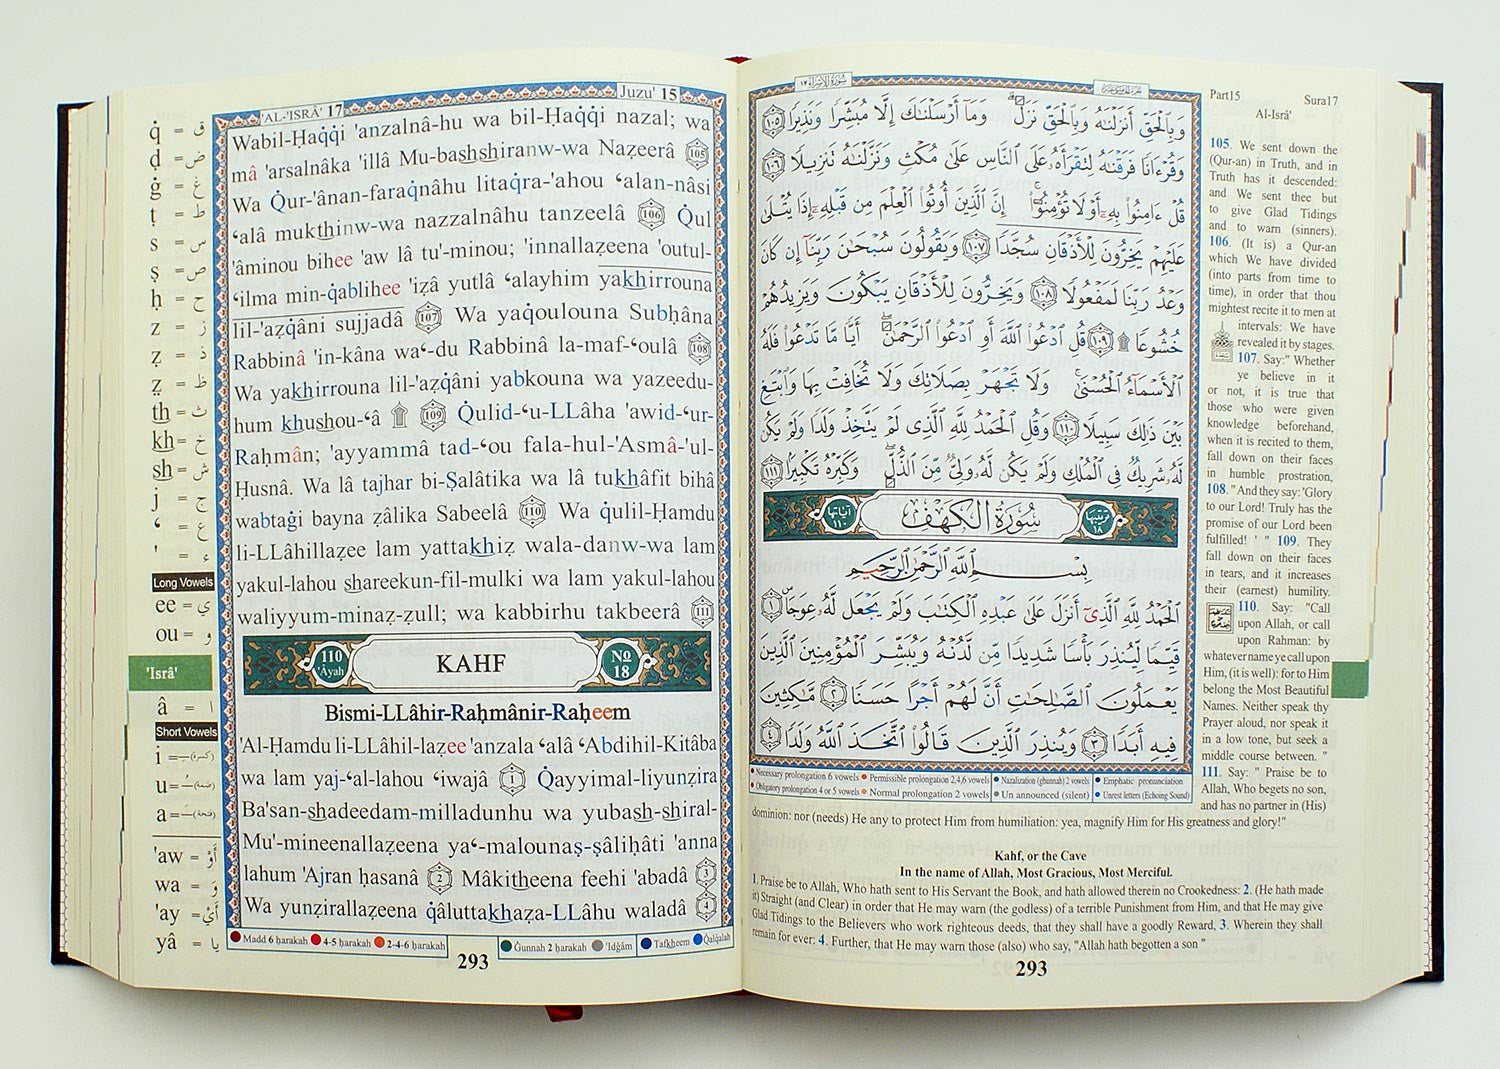 'AL-'ISRÂ' 17
Juzu' 15
q̇ = ق
ḍ = ض
ġ = غ
ṭ = ط
s = س
ṣ = ص
ḥ = ح
z = ز
ẓ = ذ
ẓ = ظ
th = ث
kh = خ
sh = ش
j = ج
ʻ = ع
' = ء
Long Vowels
ee = ي
ou = و
'Isrâ'
â = ا
Short Vowels
i = (كسرة)
u = (ضمة)
a = (فتحة)
'aw = أَوْ
wa = وَ
'ay = أَيْ
yâ = يا
Wabil-Ḥaq̇q̇i 'anzalnâ-hu wa bil-Ḥaq̇q̇i nazal; wa
mâ 'arsalnâka 'illâ Mu-bashshiranw-wa Naẓeerâ 105
Wa Q̇ur-'ânan-faraq̇nâhu litaq̇ra-'ahou ʻalan-nâsi
ʻalâ mukthinw-wa nazzalnâhu tanzeelâ 106 Q̇ul
'âminou bihee 'aw lâ tu'-minou; 'innallaẓeena 'outul-
ʻilma min-q̇ablihee 'iẓâ yutlâ ʻalayhim yakhirrouna
lil-'aẓq̇âni sujjadâ 107 Wa yaq̇oulouna Subḥâna
Rabbinâ 'in-kâna waʻ-du Rabbinâ la-maf-ʻoulâ 108
Wa yakhirrouna lil-'aẓq̇âni yabkouna wa yazeedu-
hum khushou-ʻâ ۩ 109 Q̇ulid-ʻu-LLâha 'awid-ʻur-
Raḥmân; 'ayyammâ tad-ʻou fala-hul-'Asmâ-'ul-
Ḥusnâ. Wa lâ tajhar bi-Ṣalâtika wa lâ tukhâfit bihâ
wabtaġi bayna ẓâlika Sabeelâ 110 Wa q̇ulil-Ḥamdu
li-LLâhillaẓee lam yattakhiẓ wala-danw-wa lam
yakul-lahou shareekun-fil-mulki wa lam yakul-lahou
waliyyum-minaẓ-ẓull; wa kabbirhu takbeerâ 111
110 'Âyah
KAHF
No 18
Bismi-LLâhir-Raḥmânir-Raḥeem
'Al-Ḥamdu li-LLâhil-laẓee 'anzala ʻalâ ʻAbdihil-Kitâba
wa lam yaj-ʻal-lahou ʻiwajâ 1 Q̇ayyimal-liyunẓira
Ba'san-shadeedam-milladunhu wa yubash-shiral-
Mu'-mineenallaẓeena yaʻ-malounaṣ-ṣâliḥâti 'anna
lahum 'Ajran ḥasanâ 2 Mâkitheena feehi 'abadâ 3
Wa yunẓirallaẓeena q̇âluttakhaẓa-LLâhu waladâ 4
Madd 6 ḥarakah 4-5 ḥarakah 2-4-6 ḥarakah Ġunnah 2 ḥarakah 'Idġâm Tafkheem Q̇alq̇alah
293
سورة الإسراء ١٧
وَبِالْحَقِّ أَنزَلْنَٰهُ وَبِالْحَقِّ نَزَلَ وَمَا أَرْسَلْنَٰكَ إِلَّا مُبَشِّرًا وَنَذِيرًا ١٠٥
وَقُرْءَانًا فَرَقْنَٰهُ لِتَقْرَأَهُ عَلَى النَّاسِ عَلَىٰ مُكْثٍ وَنَزَّلْنَٰهُ تَنزِيلًا ١٠٦
قُلْ ءَامِنُوا بِهِ أَوْ لَا تُؤْمِنُوا إِنَّ الَّذِينَ أُوتُوا الْعِلْمَ مِن قَبْلِهِ إِذَا يُتْلَىٰ
عَلَيْهِمْ يَخِرُّونَ لِلْأَذْقَانِ سُجَّدًا ١٠٧ وَيَقُولُونَ سُبْحَٰنَ رَبِّنَا إِن كَانَ
وَعْدُ رَبِّنَا لَمَفْعُولًا ١٠٨ وَيَخِرُّونَ لِلْأَذْقَانِ يَبْكُونَ وَيَزِيدُهُمْ
خُشُوعًا ۩ ١٠٩ قُلِ ادْعُوا اللَّهَ أَوِ ادْعُوا الرَّحْمَٰنَ أَيًّا مَّا تَدْعُوا فَلَهُ
الْأَسْمَاءُ الْحُسْنَىٰ وَلَا تَجْهَرْ بِصَلَاتِكَ وَلَا تُخَافِتْ بِهَا وَابْتَغِ
بَيْنَ ذَٰلِكَ سَبِيلًا ١١٠ وَقُلِ الْحَمْدُ لِلَّهِ الَّذِي لَمْ يَتَّخِذْ وَلَدًا وَلَمْ يَكُن
لَّهُ شَرِيكٌ فِي الْمُلْكِ وَلَمْ يَكُن لَّهُ وَلِيٌّ مِّنَ الذُّلِّ وَكَبِّرْهُ تَكْبِيرًا ١١١
ترتيبها ١٨
سُورَةُ الْكَهْفِ
آياتها ١١٠
بِسْمِ اللَّهِ الرَّحْمَٰنِ الرَّحِيمِ
الْحَمْدُ لِلَّهِ الَّذِي أَنزَلَ عَلَىٰ عَبْدِهِ الْكِتَٰبَ وَلَمْ يَجْعَل لَّهُ عِوَجًا ١
قَيِّمًا لِّيُنذِرَ بَأْسًا شَدِيدًا مِّن لَّدُنْهُ وَيُبَشِّرَ الْمُؤْمِنِينَ الَّذِينَ
يَعْمَلُونَ الصَّٰلِحَٰتِ أَنَّ لَهُمْ أَجْرًا حَسَنًا ٢ مَّٰكِثِينَ
فِيهِ أَبَدًا ٣ وَيُنذِرَ الَّذِينَ قَالُوا اتَّخَذَ اللَّهُ وَلَدًا ٤
Necessary prolongation 6 vowels Permissible prolongation 2,4,6 vowels Nazalization (ghunnah) 2 vowels Emphatic pronunciation
Obligatory prolongation 4 or 5 vowels Normal prolongation 2 vowels Un announced (silent) Unrest letters (Echoing Sound)
Part15 Sura17
Al-Isrâ'
105. We sent down the
(Qur-an) in Truth, and in
Truth has it descended:
and We sent thee but
to give Glad Tidings
and to warn (sinners).
106. (It is) a Qur-an
which We have divided
(into parts from time to
time), in order that thou
mightest recite it to men at
intervals: We have
revealed it by stages.
107. Say:" Whether
ye believe in it
or not, it is true that
those who were given
knowledge beforehand,
when it is recited to them,
fall down on their faces
in humble prostration,
108. " And they say: 'Glory
to our Lord! Truly has the
promise of our Lord been
fulfilled! ' " 109. They
fall down on their faces
in tears, and it increases
their (earnest) humility.
110. Say: "Call
upon Allah, or call
upon Rahman: by
whatever name ye call upon
Him, (it is well): for to Him
belong the Most Beautiful
Names. Neither speak thy
Prayer aloud, nor speak it
in a low tone, but seek a
middle course between. "
111. Say: " Praise be to
Allah, Who begets no son,
and has no partner in (His)
dominion: nor (needs) He any to protect Him from humiliation: yea, magnify Him for His greatness and glory!"
Kahf, or the Cave
In the name of Allah, Most Gracious, Most Merciful.
1. Praise be to Allah, Who hath sent to His Servant the Book, and hath allowed therein no Crookedness: 2. (He hath made
it) Straight (and Clear) in order that He may warn (the godless) of a terrible Punishment from Him, and that He may give
Glad Tidings to the Believers who work righteous deeds, that they shall have a goodly Reward, 3. Wherein they shall
remain for ever: 4. Further, that He may warn those (also) who say, "Allah hath begotten a son "
293